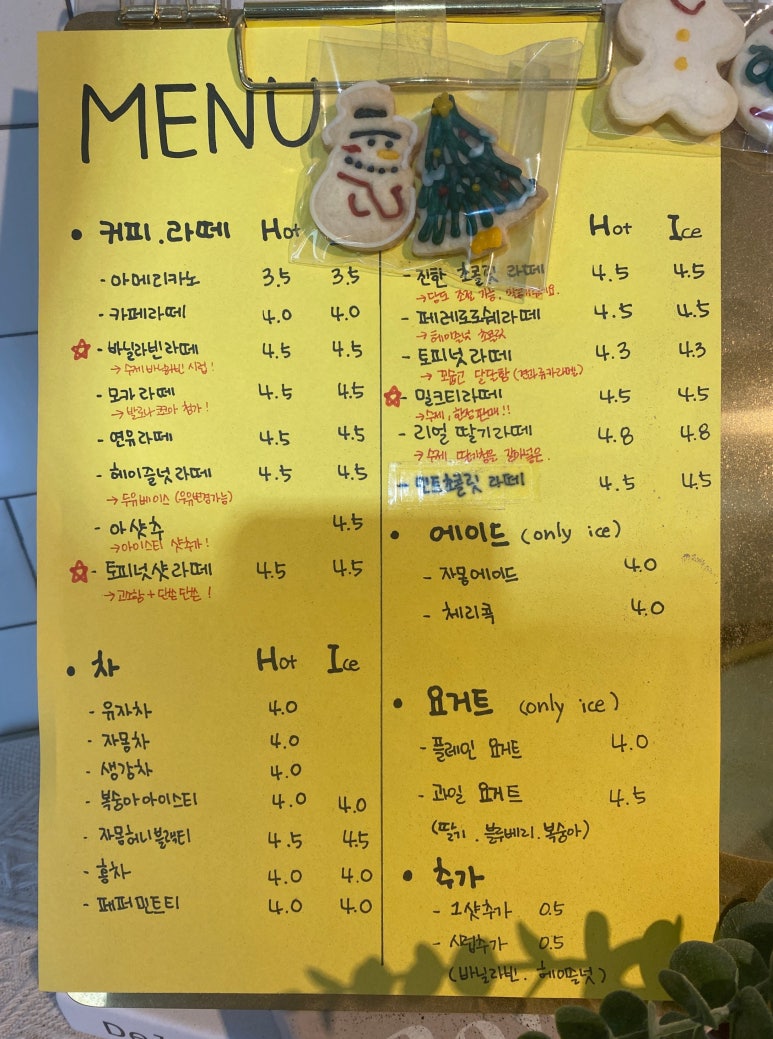 MENU
• 커피.라떼 Hot
- 아메리카노 3.5 3.5
- 카페라떼 4.0 4.0
☆ - 바닐라빈라떼 4.5 4.5
→ 수제 바닐라빈 시럽!
- 모카라떼 4.5 4.5
→ 발로나 코코아 첨가!
- 연유라떼 4.5 4.5
- 헤이즐넛라떼 4.5 4.5
→ 두유베이스 (우유변경가능)
- 아샷추 4.5
→ 아이스티 샷추가!
☆ - 토피넛샷라떼 4.5 4.5
→ 고소함 + 단쓴단쓴!
• 차 Hot Ice
- 유자차 4.0
- 자몽차 4.0
- 생강차 4.0
- 복숭아아이스티 4.0 4.0
- 자몽허니블랙티 4.5 4.5
- 홍차 4.0 4.0
- 페퍼민트티 4.0 4.0
Hot Ice
- 진한 초콜릿 라떼 4.5 4.5
→ 당도 조절 가능.
- 페레로로쉐라떼 4.5 4.5
→ 헤이즐넛 초콜릿
- 토피넛라떼 4.3 4.3
→ 꼬숩고 달달함 (견과류카라멜)
☆ - 밀크티라떼 4.5 4.5
→ 수제, 한정판매!!
- 리얼 딸기라떼 4.8 4.8
→ 수제
- 민트초콜릿 라떼 4.5 4.5
• 에이드 (only ice)
- 자몽에이드 4.0
- 체리콕 4.0
• 요거트 (only ice)
- 플레인 요거트 4.0
- 과일 요거트 4.5
(딸기.블루베리.복숭아)
• 추가
- 1샷추가 0.5
- 시럽추가 0.5
(바닐라빈.헤이즐넛)